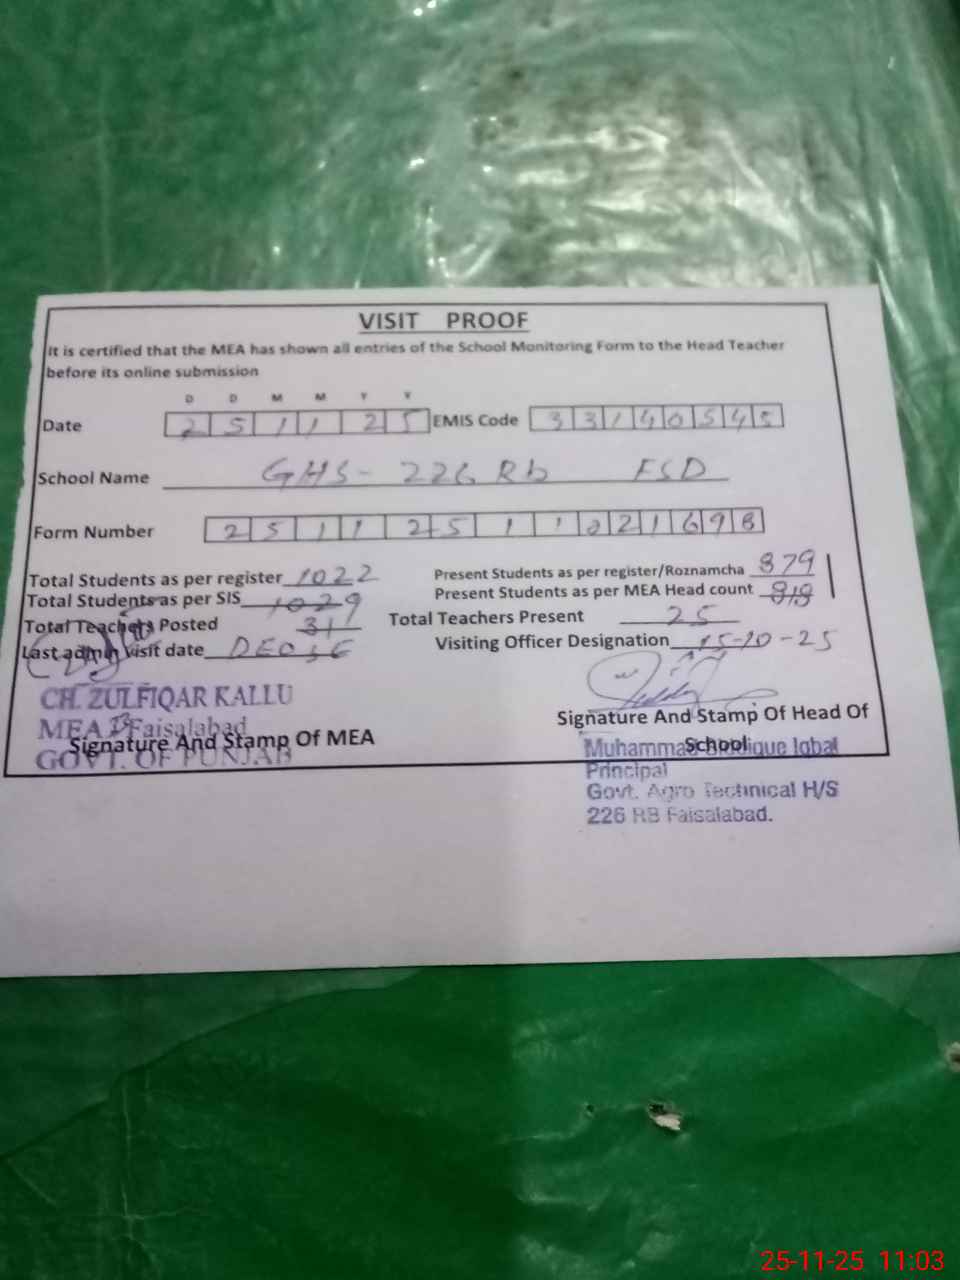 VISIT PROOF
It is certified that the MEA has shown all entries of the School Monitoring Form to the Head Teacher
before its online submission
D D M M Y Y
Date 2 5 1 1 2 5 EMIS Code 3 3 1 4 0 5 4 5
School Name GHS - 226 Rb FSD
Form Number 2 5 1 1 2 5 1 1 2 2 1 6 9 8
Total Students as per register 1022 Present Students as per register/Roznamcha 879
Total Students as per SIS 1029 Present Students as per MEA Head count 818
Total Teachers Posted 31 Total Teachers Present 25
Last admin Visit date DEOSE Visiting Officer Designation 15-10-25
CH. ZULFIQAR KALLU
MEA Faisalabad
GOVT. OF PUNJAB
Signature And Stamp Of MEA
Signature And Stamp Of Head Of
School
Muhammad Iqbal
Principal
Govt. Agro Technical H/S
226 RB Faisalabad.
25-11-25 11:03